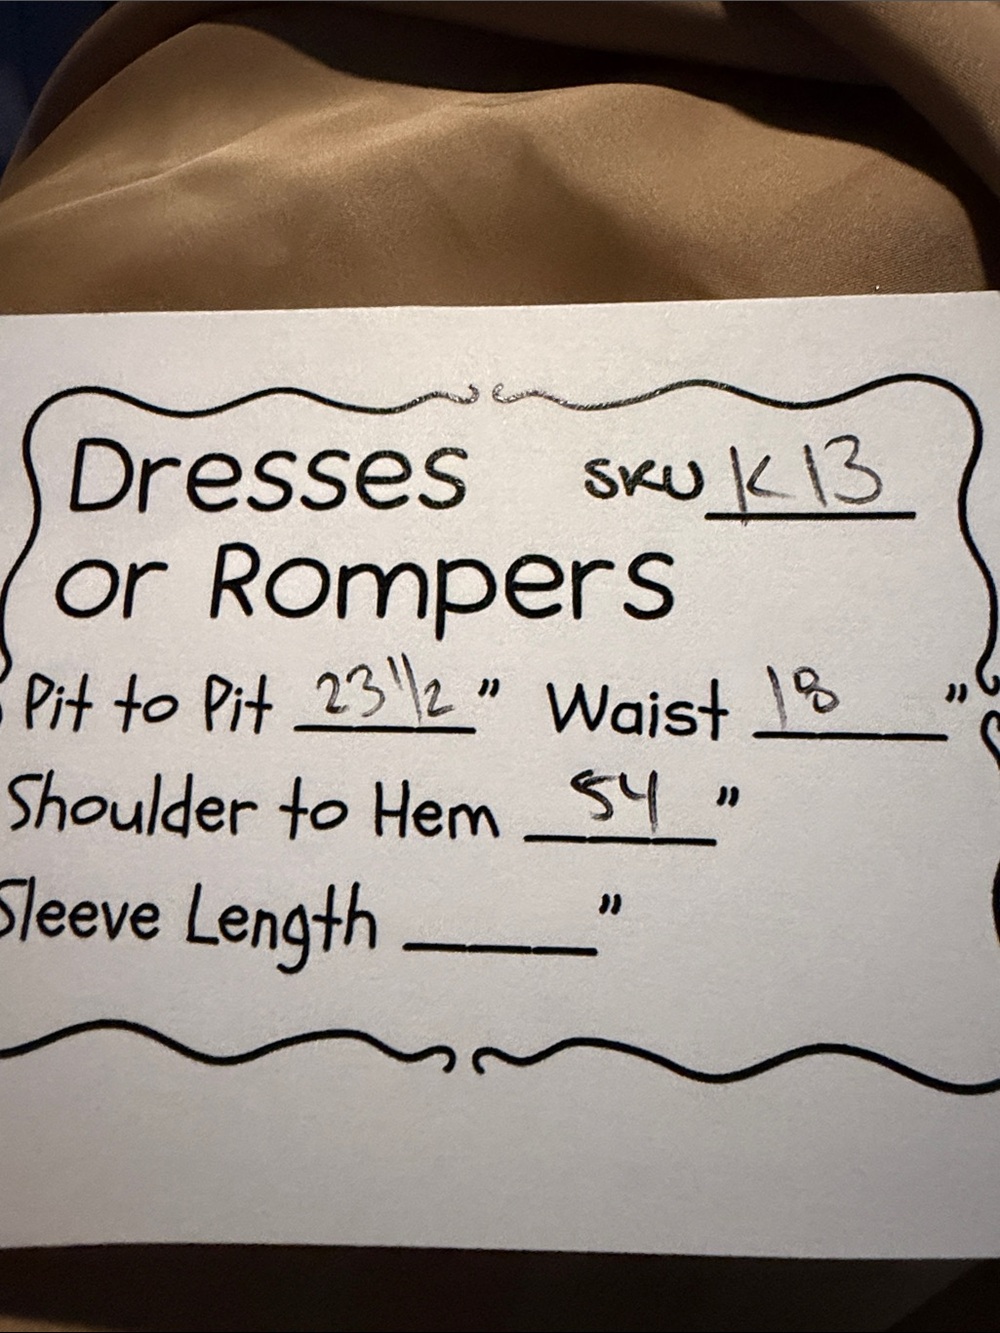 Dresses SKU K13
or Rompers
Pit to Pit 23 1/2 " Waist 18 "
Shoulder to Hem 54 "
Sleeve Length ____ "